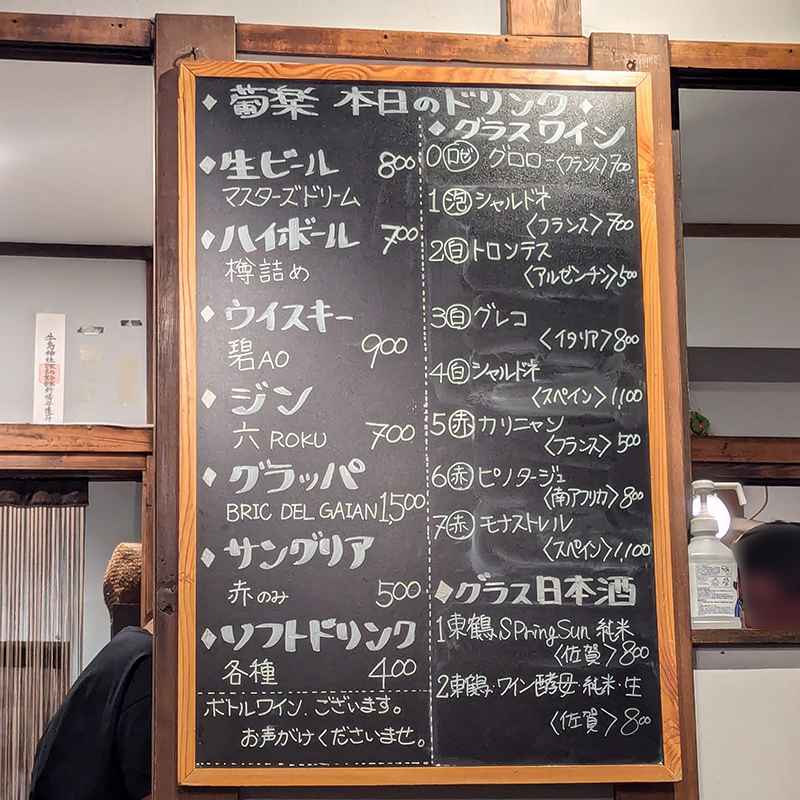 葡楽 本日のドリンク
生ビール 800
マスターズドリーム
ハイボール 700
樽詰め
ウイスキー
碧AO 900
ジン
六 ROKU 700
グラッパ
BRIC DEL GAIAN 1,500
サングリア
赤のみ 500
ソフトドリンク
各種 400
ボトルワイン、ございます。
お声がけくださいませ。
グラスワイン
0 ロゼ グロロー〈フランス〉700
1 泡 シャルドネ
〈フランス〉700
2 白 トロンテス
〈アルゼンチン〉500
3 白 グレコ
〈イタリア〉800
4 白 シャルドネ
〈スペイン〉1,100
5 赤 カリニャン
〈フランス〉500
6 赤 ピノタージュ
〈南アフリカ〉800
7 赤 モナストレル
〈スペイン〉1,100
グラス日本酒
1 東鶴 Spring Sun 純米
〈佐賀〉800
2 東鶴・ワイン酵母・純米・生
〈佐賀〉800
牛島神社